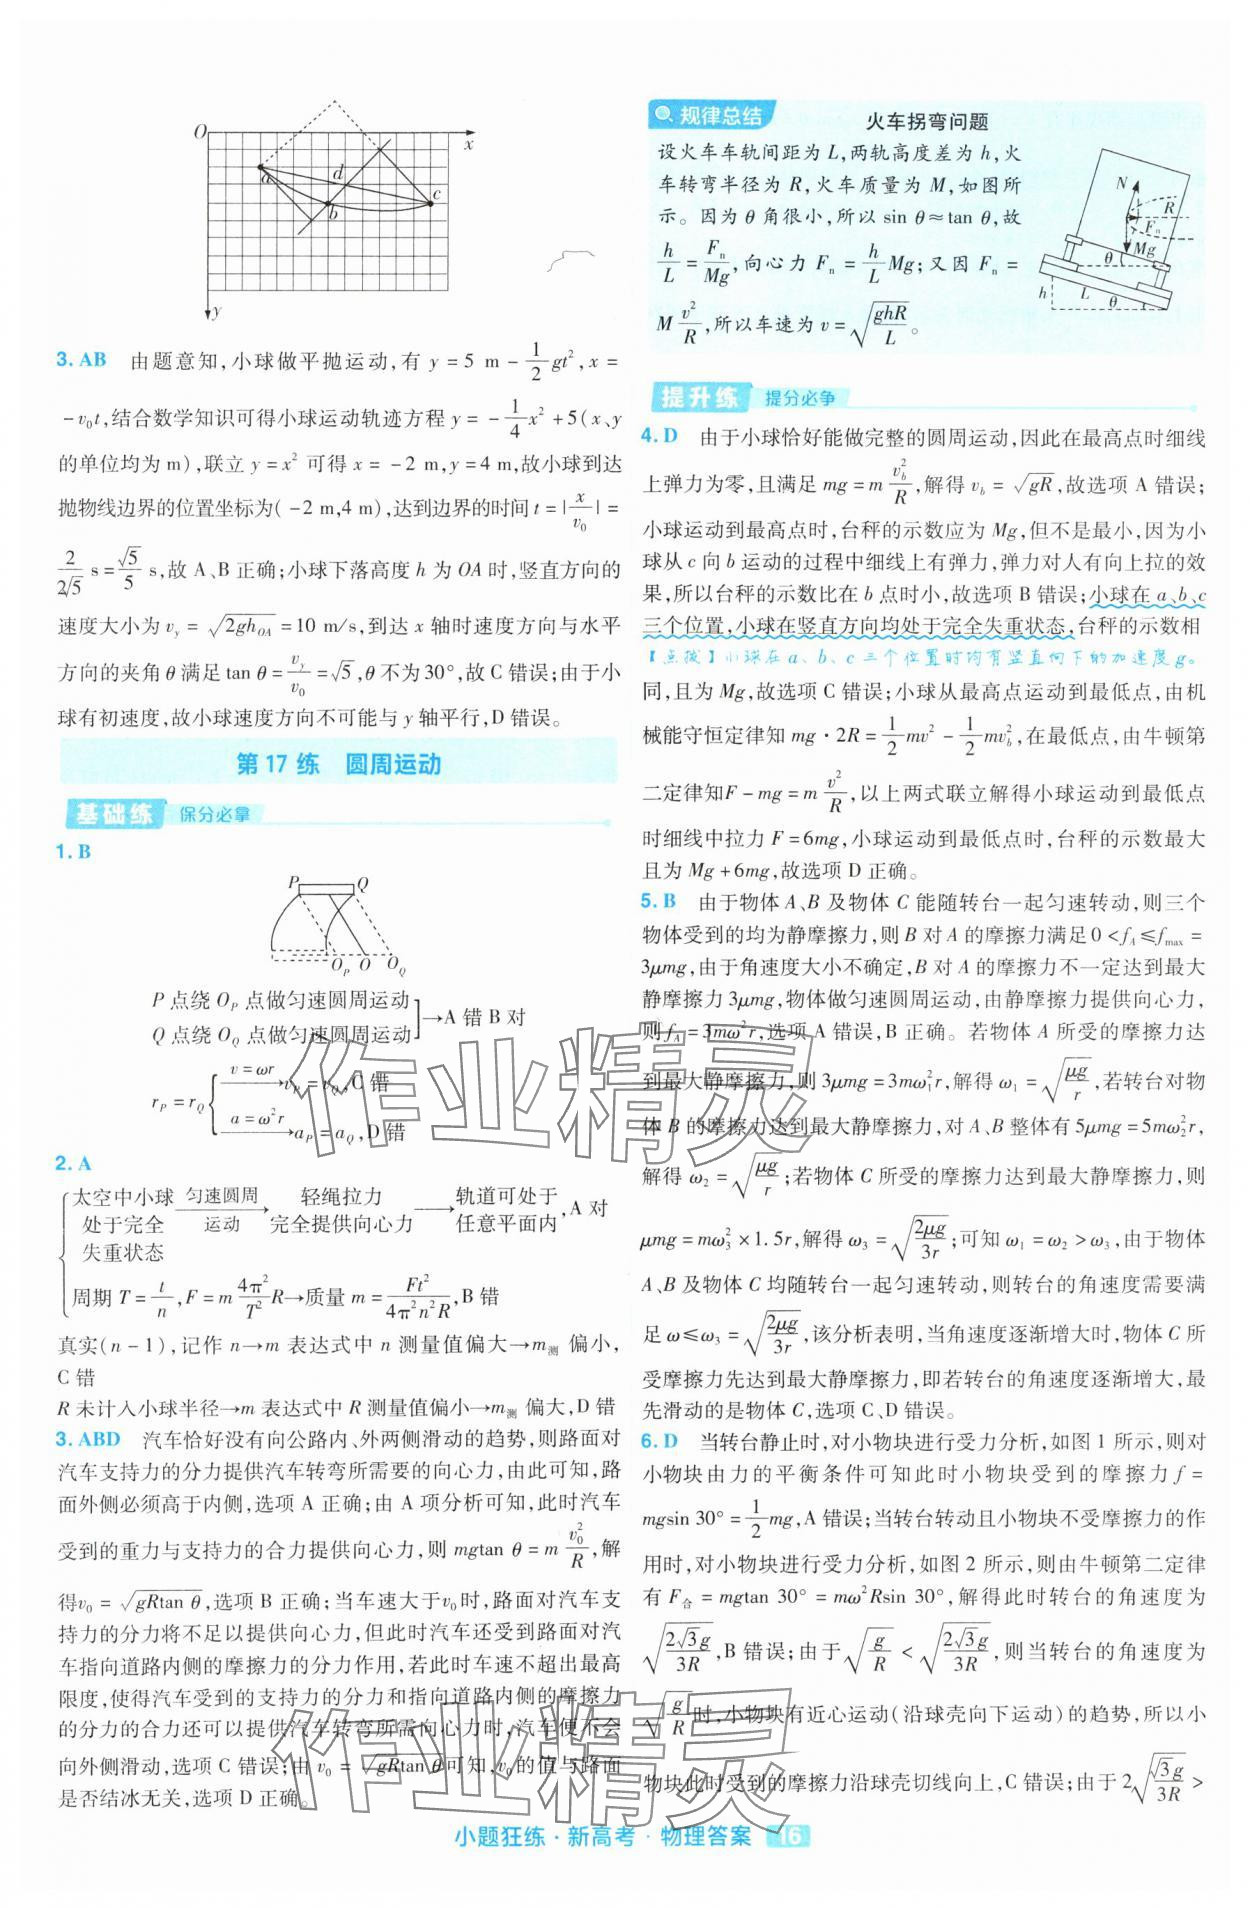 O
x
a
d
b
c
y
3. AB 由题意知,小球做平抛运动,有 y=5 m-1/2gt²,x=
-v₀t,结合数学知识可得小球运动轨迹方程 y=-1/4x²+5(x、y
的单位均为 m),联立 y=x² 可得 x=-2 m,y=4 m,故小球到达
抛物线边界的位置坐标为(-2 m,4 m),达到边界的时间 t=|x/v₀|=
2/2√5 s=√5/5 s,故 A、B 正确;小球下落高度 h 为 OA 时,竖直方向的
速度大小为 v_y=√(2gh_OA)=10 m/s,到达 x 轴时速度方向与水平
方向的夹角 θ 满足 tan θ=v_y/v₀=√5,θ 不为 30°,故 C 错误;由于小
球有初速度,故小球速度方向不可能与 y 轴平行,D 错误。
第 17 练 圆周运动
基础练 保分必拿
1. B
P Q
O_P O O_Q
P 点绕 O_P 点做匀速圆周运动
Q 点绕 O_Q 点做匀速圆周运动
→A 错 B 对
v=ωr
→v_P=v_Q,C 错
r_P=r_Q
a=ω²r
→a_P=a_Q,D 错
2. A
太空中小球 匀速圆周 轻绳拉力 轨道可处于
处于完全 运动 完全提供向心力 任意平面内,A 对
失重状态
周期 T=t/n,F=m4π²/T²R→质量 m=Ft²/4π²n²R,B 错
真实(n-1),记作 n→m 表达式中 n 测量值偏大→m测 偏小,
C 错
R 未计入小球半径→m 表达式中 R 测量值偏小→m测 偏大,D 错
3. ABD 汽车恰好没有向公路内、外两侧滑动的趋势,则路面对
汽车支持力的分力提供汽车转弯所需要的向心力,由此可知,路
面外侧必须高于内侧,选项 A 正确;由 A 项分析可知,此时汽车
受到的重力与支持力的合力提供向心力,则 mgtan θ=m v₀²/R,解
得v₀=√(gRtan θ),选项 B 正确;当车速大于v₀时,路面对汽车支
持力的分力将不足以提供向心力,但此时汽车还受到路面对汽
车指向道路内侧的摩擦力的分力作用,若此时车速不超出最高
限度,使得汽车受到的支持力的分力和指向道路内侧的摩擦力
的分力的合力还可以提供汽车转弯所需向心力时,汽车便不会
向外侧滑动,选项 C 错误;由 v₀=√(gRtan θ)可知,v₀的值与路面
是否结冰无关,选项 D 正确。
规律总结 火车拐弯问题
设火车车轨间距为 L,两轨高度差为 h,火
车转弯半径为 R,火车质量为 M,如图所
示。因为 θ 角很小,所以 sin θ≈tan θ,故
h/L=Fₙ/Mg,向心力 Fₙ=h/L Mg;又因 Fₙ=
M v²/R,所以车速为 v=√(ghR/L)。
N
R
Fₙ
Mg
θ
h
L
θ
提升练 提分必争
4. D 由于小球恰好能做完整的圆周运动,因此在最高点时细线
上弹力为零,且满足 mg=m v_b²/R,解得 v_b=√(gR),故选项 A 错误;
小球运动到最高点时,台秤的示数应为 Mg,但不是最小,因为小
球从 c 向 b 运动的过程中细线上有弹力,弹力对人有向上拉的效
果,所以台秤的示数比在 b 点时小,故选项 B 错误;小球在 a、b、c
三个位置,小球在竖直方向均处于完全失重状态,台秤的示数相
【点拨】小球在 a、b、c 三个位置时均有竖直向下的加速度 g。
同,且为 Mg,故选项 C 错误;小球从最高点运动到最低点,由机
械能守恒定律知 mg·2R=1/2mv²-1/2mv_b²,在最低点,由牛顿第
二定律知F-mg=m v²/R,以上两式联立解得小球运动到最低点
时细线中拉力 F=6mg,小球运动到最低点时,台秤的示数最大
且为 Mg+6mg,故选项 D 正确。
5. B 由于物体 A、B 及物体 C 能随转台一起匀速转动,则三个
物体受到的均为静摩擦力,则 B 对 A 的摩擦力满足 0<f_A≤f_max=
3μmg,由于角速度大小不确定,B 对 A 的摩擦力不一定达到最大
静摩擦力 3μmg,物体做匀速圆周运动,由静摩擦力提供向心力,
则 f_A=3mω²r,选项 A 错误,B 正确。若物体 A 所受的摩擦力达
到最大静摩擦力,则 3μmg=3mω₁²r,解得 ω₁=√(μg/r),若转台对物
体 B 的摩擦力达到最大静摩擦力,对 A、B 整体有 5μmg=5mω₂²r,
解得 ω₂=√(μg/r);若物体 C 所受的摩擦力达到最大静摩擦力,则
μmg=mω₃²×1.5r,解得 ω₃=√(2μg/3r);可知 ω₁=ω₂>ω₃,由于物体
A、B 及物体 C 均随转台一起匀速转动,则转台的角速度需要满
足 ω≤ω₃=√(2μg/3r),该分析表明,当角速度逐渐增大时,物体 C 所
受摩擦力先达到最大静摩擦力,即若转台的角速度逐渐增大,最
先滑动的是物体 C,选项 C、D 错误。
6. D 当转台静止时,对小物块进行受力分析,如图 1 所示,则对
小物块由力的平衡条件可知此时小物块受到的摩擦力 f=
mgsin 30°=1/2mg,A 错误;当转台转动且小物块不受摩擦力的作
用时,对小物块进行受力分析,如图 2 所示,则由牛顿第二定律
有 F合=mgtan 30°=mω²Rsin 30°,解得此时转台的角速度为
√(2√3g/3R),B 错误;由于√(g/R)<√(2√3g/3R),则当转台的角速度为
√(g/R)时,小物块有近心运动(沿球壳向下运动)的趋势,所以小
物块此时受到的摩擦力沿球壳切线向上,C 错误;由于 2√(√3g/3R)>
作业精灵
作业精灵
小题狂练·新高考·物理答案 16